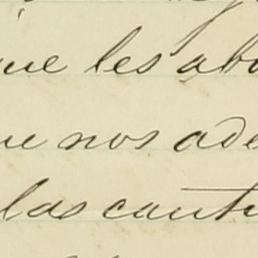 que les abo
ue nos ade
las canti